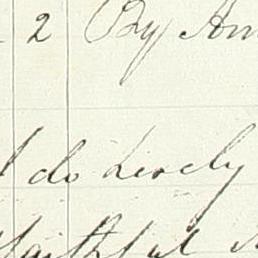 2 By Am
do hereby
faithful